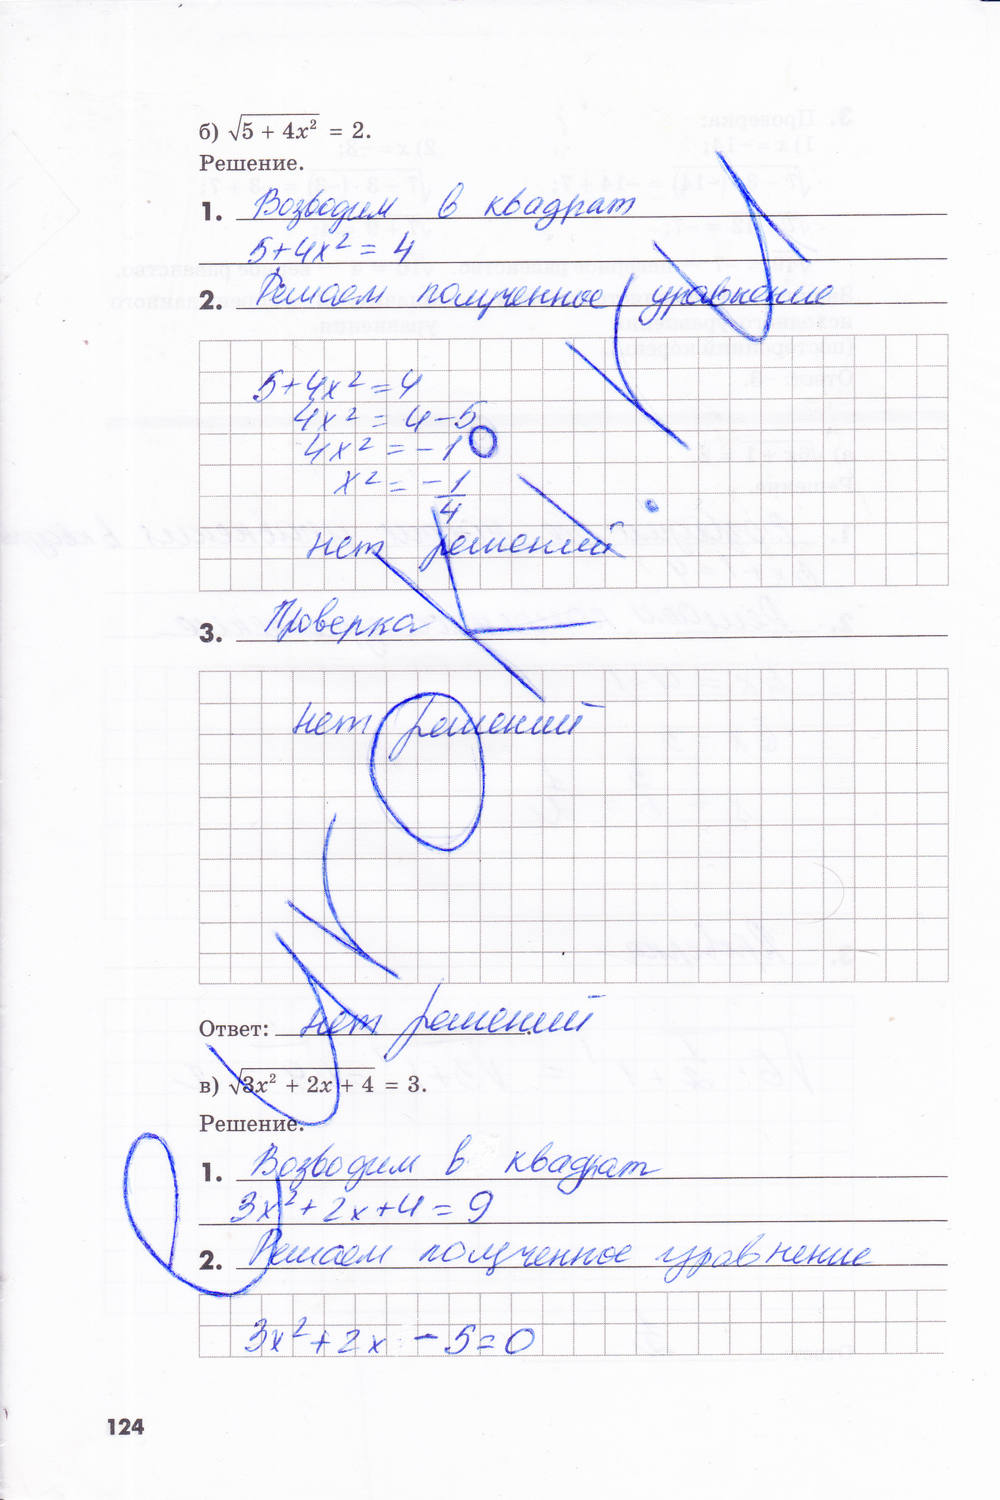 б) √5 + 4x² = 2.
Решение.
1. Возводим в квадрат
5+4x² = 4
2. Решаем полученное уравнение
5+4x² = 4
4x² = 4-5
4x² = -1
x² = -1/4
нет решений
3. Проверка
нет решений
Ответ: нет решений
в) √3x² + 2x + 4 = 3.
Решение.
1. Возводим в квадрат
3x²+2x+4 = 9
2. Решаем полученное уравнение
3x²+2x - 5=0
124